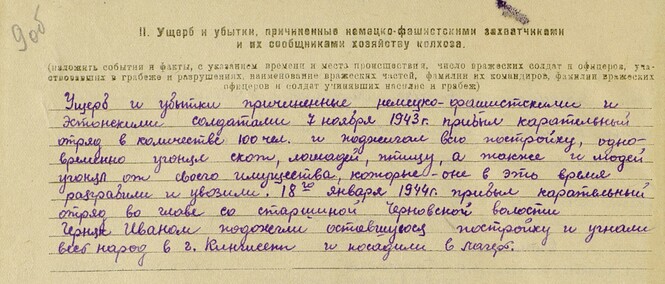 9об
II. Ущерб и убытки, причиненные немецко-фашистскими захватчиками
и их сообщниками хозяйству колхоза.
(изложить события и факты, с указанием времени и места происшествия, число вражеских солдат и офицеров, уча-
ствовавших в грабеже и разрушениях, наименование вражеских частей, фамилии их командиров, фамилии вражеских
офицеров и солдат учинявших насилие и грабеж)
Ущерб и убытки причиненные немецко-фашистскими и
Эстонскими солдатами 7 ноября 1943г. прибыл карательный
отряд в количестве 100 чел. и поджигал всю постройку, одно-
временно угонял скот, лошадей, птицу, а также и людей
угонял от своего имущества, которые оне в это время
разграбили и увозили. 18го января 1944г. прибыл карательный
отряд во главе со старшиной Черновской волости
Черняк Иваном подожгли оставшуюся постройку и угнали
весь народ в г. Кингисепп и посадили в лагерь.